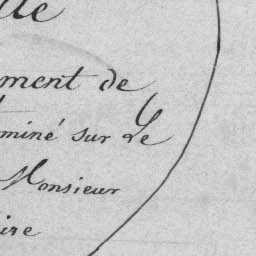 lle
ment de
miné sur Le
Monsieur
ire